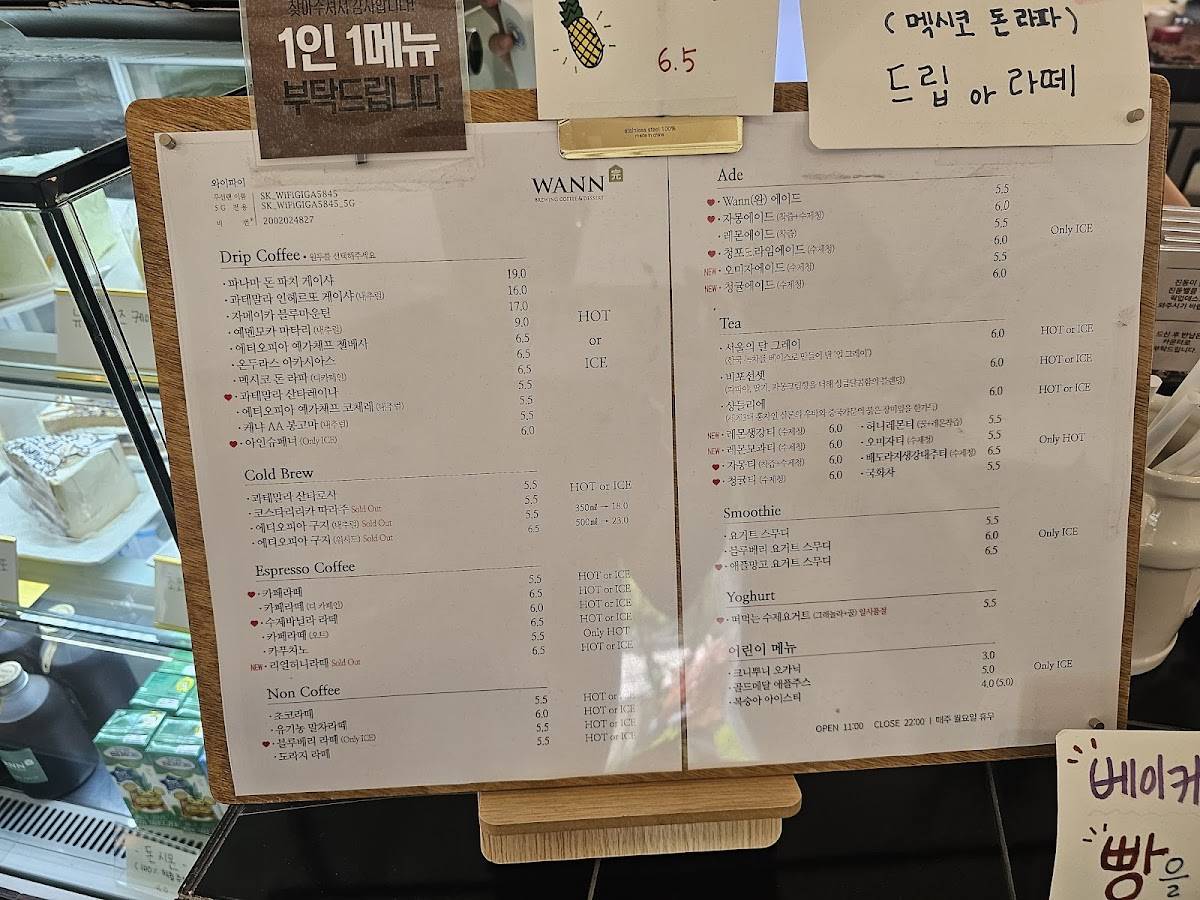 찾아주셔서 감사합니다!!
1인 1메뉴
부탁드립니다
6.5
(멕시코 돈라파)
드립 아 라떼
stainless steel 100%
made in china
와이파이
무선랜 이름 SK_WiFiGIGA5845
5G 전용 SK_WiFiGIGA5845_5G
비 번* 2002024827
WANN 完
BREWING COFFEE & DESSERT
Drip Coffee • 원두를 선택해주세요
· 파나마 돈 파치 게이샤 19.0
· 과테말라 인헤르또 게이샤 (내추럴) 16.0
· 자메이카 블루마운틴 17.0
· 예멘모카 마타리 (내추럴) 9.0
· 에티오피아 예가체프 첼베사 6.5
· 온두라스 아카시아스 6.5
· 멕시코 돈 라파 (디카페인) 6.5
♥ · 과테말라 산타레이나 5.5
· 에티오피아 예가체프 코체레 (내추럴) 5.5
· 케냐 AA 붕고마 (내추럴) 5.5
♥ · 아인슈페너 (Only ICE) 6.0
HOT
or
ICE
Cold Brew
· 과테말라 산타로사 5.5 HOT or ICE
· 코스타리카 따라주 Sold Out 5.5 350㎖ → 18.0
· 에티오피아 구지 (내추럴) Sold Out 5.5 500㎖ → 23.0
· 에티오피아 구지 (워시드) Sold Out 6.5
Espresso Coffee
♥ · 카페라떼 5.5 HOT or ICE
· 카페라떼 (디카페인) 6.5 HOT or ICE
♥ · 수제바닐라 라떼 6.0 HOT or ICE
· 카페라떼 (오트) 6.5 HOT or ICE
· 카푸치노 5.5 Only HOT
NEW · 리얼허니라떼 Sold Out 6.5 HOT or ICE
Non Coffee
· 초코라떼 5.5 HOT or ICE
· 유기농 말차라떼 6.0 HOT or ICE
♥ · 블루베리 라떼 (Only ICE) 5.5 HOT or ICE
· 도라지 라떼 5.5 HOT or ICE
Ade
♥ · Wann(완) 에이드 5.5
♥ · 자몽에이드 (착즙+수제청) 6.0
· 레몬에이드 (착즙) 5.5
♥ · 청포도라임에이드 (수제청) 6.0
NEW · 오미자에이드 (수제청) 5.5
NEW · 청귤에이드 (수제청) 6.0
Only ICE
Tea
· 서울의 단 그레이 6.0 HOT or ICE
· 비포선셋 6.0 HOT or ICE
· 샹들리에 6.0 HOT or ICE
NEW · 레몬생강티 (수제청) 6.0 · 허니레몬티 (꿀+레몬착즙) 5.5
NEW · 레몬모과티 (수제청) 6.0 · 오미자티 (수제청) 5.5
♥ · 자몽티 (착즙+수제청) 6.0 · 배도라지생강대추티 (수제청) 6.5
♥ · 청귤티 (수제청) 6.0 · 국화차 5.5
Only HOT
Smoothie
· 요거트 스무디 5.5
· 블루베리 요거트 스무디 6.0
♥ · 애플망고 요거트 스무디 6.5
Only ICE
Yoghurt
♥ · 떠먹는 수제요거트 (그래놀라+꿀) 일시품절 5.5
어린이 메뉴
· 크니뿌니 오가닉 3.0
· 골드메달 애플주스 5.0
· 복숭아 아이스티 4.0 (5.0)
Only ICE
OPEN 11:00 CLOSE 22:00 | 매주 월요일 휴무
베이커
빵을
돈 시몬